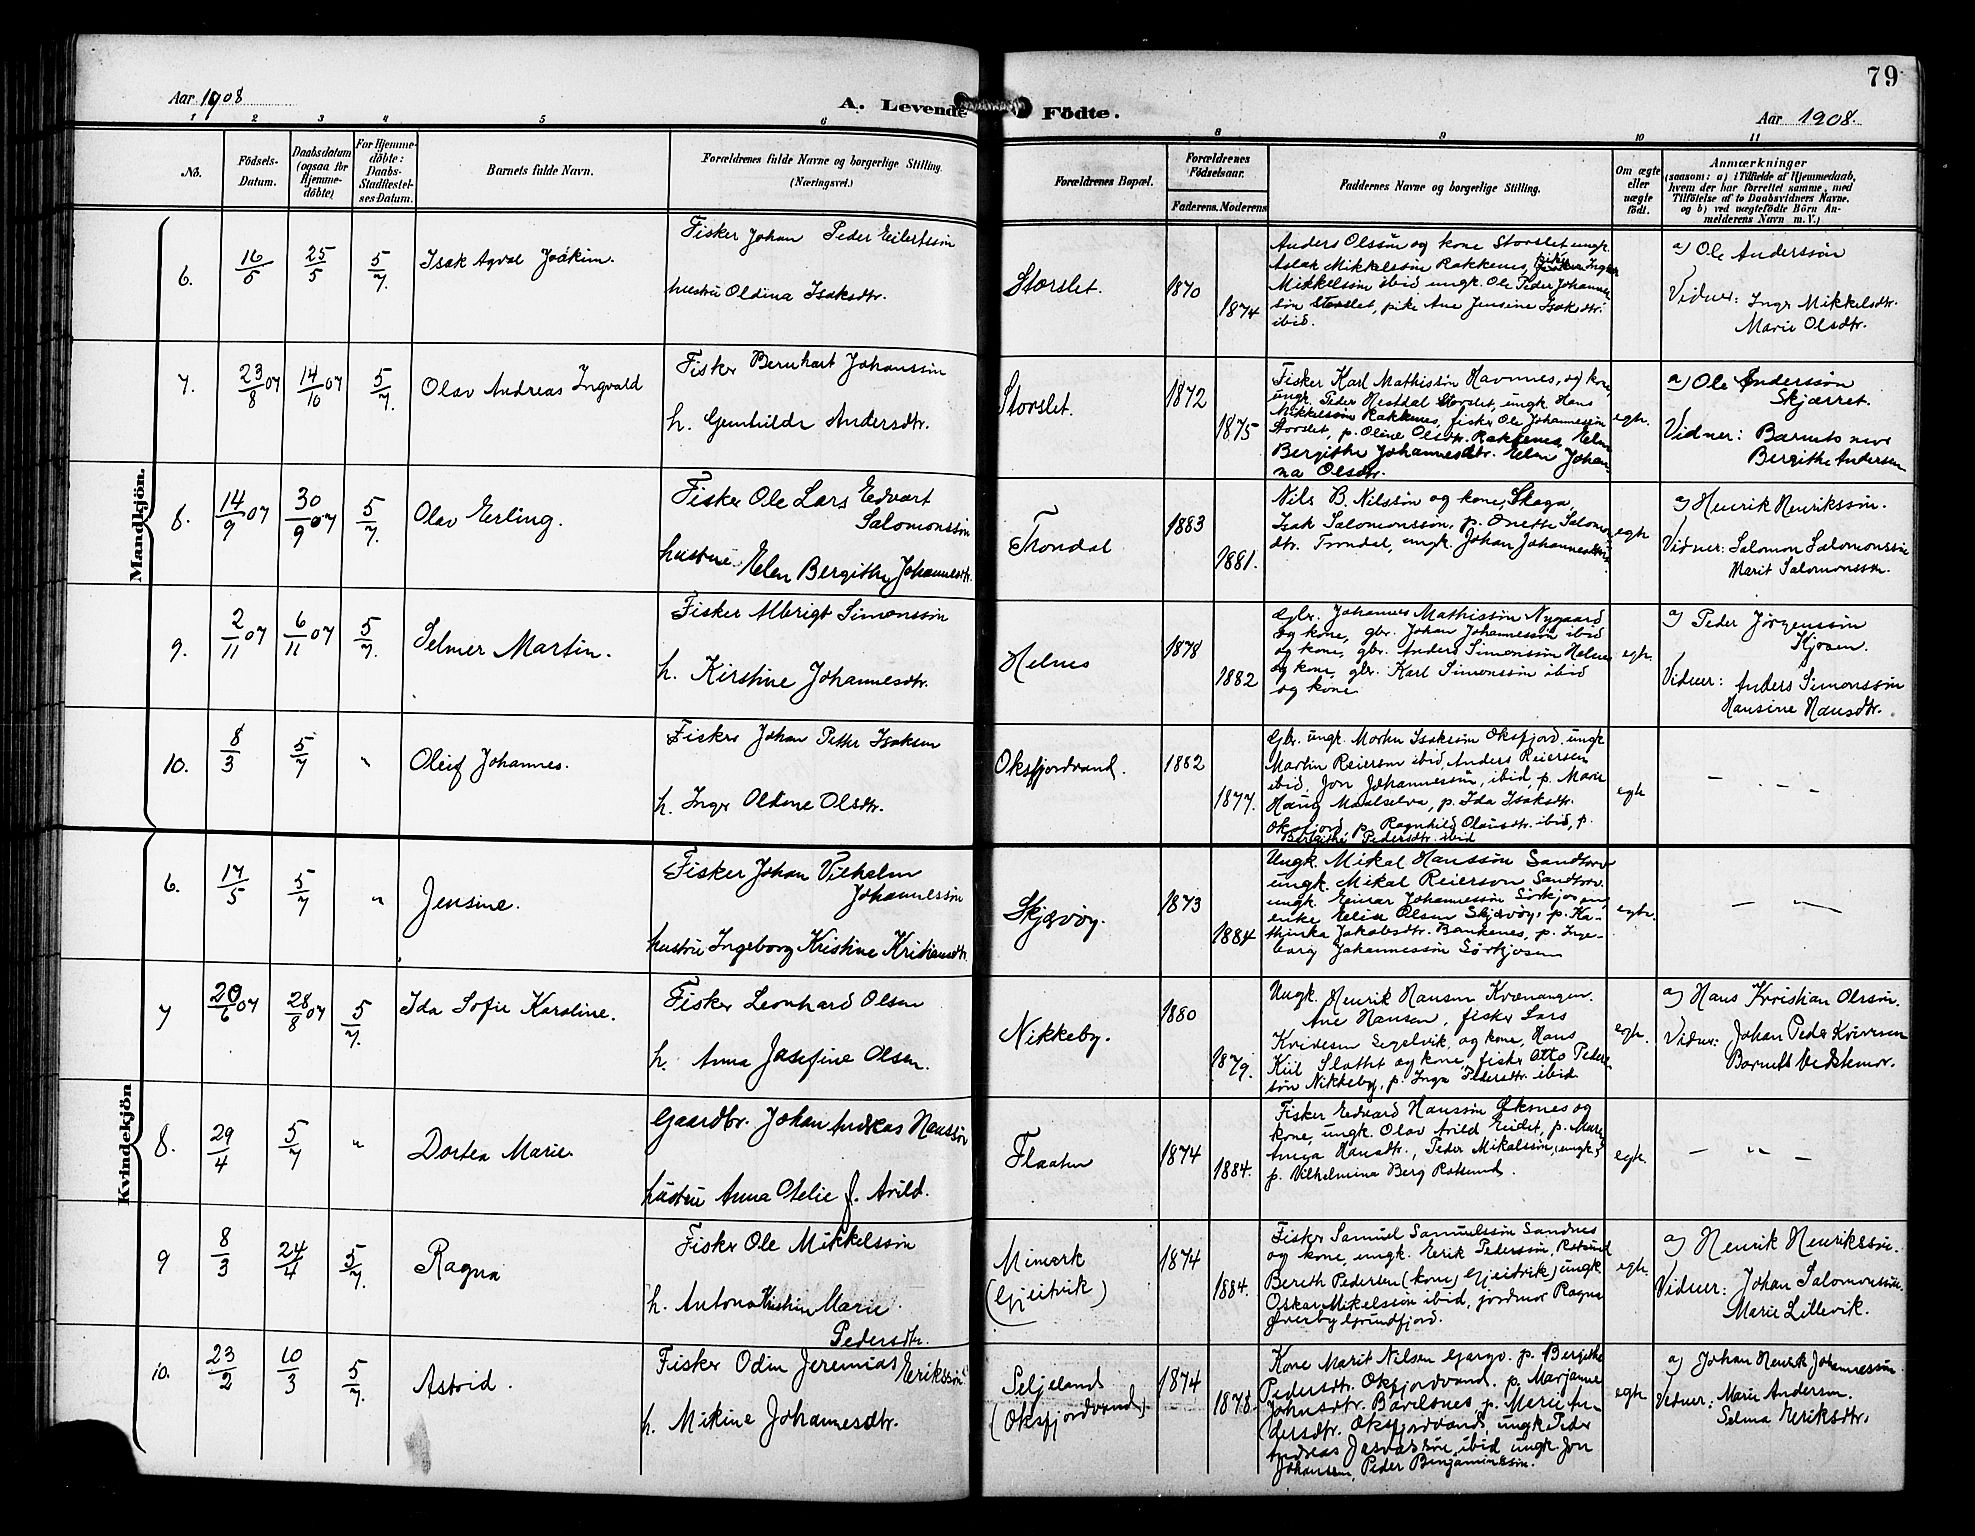 79
Aar 1908
A. Levende Födte.
Aar 1908.
1 2 3 4 5 6 8 9 10 11
No.
Födsels-Datum.
Daabsdatum (ogsaa for Hjemmedöbte)
For Hjemmedöbte: Daabs-Stadfestelses-Datum.
Barnets fulde Navn.
Forældrenes fulde Navne og borgerlige Stilling.
(Næringsvei.)
Forældrenes Bopæl.
Forældrenes Födselsaar.
Faderens. Moderens
Faddernes Navne og borgerlige Stilling.
Om ægte eller uægte födt.
Anmærkninger
(saasom: a) i Tilfælde af Hjemmedaab,
hvem der har forrettet samme, med
Tilföielse af to Daabsvidners Navne.
og b) ved uægtefödte Börn Anmelderens Navn m. V.)
Mandkjön.
6. 16/5 25/5 5/7. Isak Agval Joakim.
Fisker Johan Peder Eilertssön
hustru Oldina Isaksdtr.
Storslet. 1870 1874
Anders Olssön og kone Storslet ungk.
Aslak Mikkelssön Rakkenes, pike Inger
Mikkelssön ibid ungk. Ole Peder Johannes
sön Storslet, pike Ane Jensine Isaksdtr.
ibid.
a) Ole Anderssön
Vidner: Inger Mikkelsdtr
Marie Olsdtr.
7. 23/8 07 14/10 07 5/7. Olav Andreas Ingvald
Fisker Bernhart Johanssön
h. Gunhilde Andersdtr.
Storslet. 1872 1875
Fisker Karl Mathissön Havnnes, og kone,
ungk. Peder Hestdal Storslet, ungk. Hans
Mikkelssön Rakkenes, fisker Ole Johannessön
Storslet, p. Oline Olsdtr. Rakkenes, Elen
Bergithe Johannesdtr. Elen Johan
na Olsdtr.
egte.
a) Ole Anderssön
Skjærret.
Vidner: Barnets mor
Bergithe Andersen
8. 14/9 07 30/9 07 5/7. Olav Erling.
Fisker Ole Lars Edvart
Salomonssön
hustru Elen Bergithe Johannesdtr.
Trondal 1883 1881.
Nils B. Nilssön og kone, Skaga,
Isak Salomonssön, p. Anette Salomo
dtr. Trondal, ungk. Johan Johannessön
egte
a) Henrik Henrikssön.
Vidner: Salomon Salomonssön
Marit Salomonssön.
9. 2/11 07 6/11 07 5/7. Selmer Martin.
Fisker Albrigt Simonssön
h. Kirstine Johannesdtr.
Helnes 1878 1882
Gbr. Johannes Mathissön Nygaard
og kone, gbr. Johan Johannessön ibid
og kone, gbr. Anders Simonssön Helnes
og kone, gbr. Karl Simonssön ibid
og kone
egte.
a) Peder Jörgenssön
Kjosen.
Vidner: Anders Simonssön
Hansine Hansdtr.
10. 8/3 5/7 " Oleif Johannes.
Fisker Johan Petter Isaksen
h. Inger Oldine Olsdtr.
Oksfjordvand. 1882 1877.
Gbr. ungk. Morten Isaksön Oksfjord. ungk
Martin Reiersen ibid Anders Reiersen
ibid, Jon Johannessön, ibid p. Marie
Haug Maalselva, p. Ida Isaksdtr.
Oksfjord, p. Ragnhild Olausdtr. ibid, p.
Bergithe Pedersdtr. ibid
egte
— " —
Kvindekjön
6. 17/5 5/7 " Jensine.
Fisker Johan Vilhelm
Johannessön
hustru Ingeborg Kristine Kristiansdtr.
Skjævöy. 1873 1884
Ungk. Mikal Hanssön Sandtorv
ungk. Mikal Reierson Sandtorv
ungk. Einar Johannessön Sörkjosen,
enke Elen Olsen Skjævöy, p. Ka-
thinka Jakobsdtr. Bankenes, p. Inge-
borg Johannessön Sörkjosen
egte.
— " —
7 20/6 07 28/8 07 5/7. Ida Sofie Karoline.
Fisker Leonhard Olsen
h. Anna Josefine Olsen.
Nikkeby. 1880 1879.
Ungk. Henrik Hansen Kvænangen.
Ane Hansen, fisker Lars
Kridesen Segelvik, og kone, Hans
Kiil Slottet og kone, fisker Otto Peder
sön Nikkeby, p. Inga Pedersdtr. ibid
egte.
a) Hans Kristian Olssön.
Vidner: Johan Peder
Barnets bedstemor.
8. 29/4 5/7 " Dortea Marie.
Gaardbr. Johan Andreas Hanssön
hustru Anna Otelie f. Arild.
Flaaten 1874 1884.
Fisker Edvard Hanssön Öksnes og
kone, ungk. Olav Arild Eidet, p. Marie
Anega Hansdtr., Peder Mikalssön, ungk.
p. Vilhelmina Berg Rotsund.
egte.
— " —
9 8/3 24/4 5/7. Ragna
Fisker Ole Mikkelssön
h. Antona Kristine Marie
Pedersdtr.
Mimerk
(Gjeitvik) 1874 1884.
Fisker Samuel Samuelssön Sandnes
og kone, ungk. Eerik Pederssön, Rotsund
Bereth Pedersen (kone) Gjeitvik) ungk
Oskar Mikelssön ibid, jordmor Ragna
Överby Grundfjord.
egte.
a) Henrik Henrikssön.
Vidner: Johan Salomonssön.
Marie Lillevik.
10. 23/2 10/3 5/7. Astrid.
Fisker Odin Jeremias Erikssön
h. Mikine Johannesdtr.
Seljeland
(Oksfjordvand) 1874 1878.
Kone Marit Nilsen Gargo. p. Bergithe
Pedersdtr. Oksfjordvand. p. Marjanne
Johnsdtr. Bavelsnes p. Merie An-
dersdtr. Oksfjordvand, ungk Peder
Andreas ibid ungk. Jon
Johansen, Peder Benjaminssön.
egte
a) Johan Henrik Johannessön
Vidner: Marie Andersen.
Selma Eriksdtr.